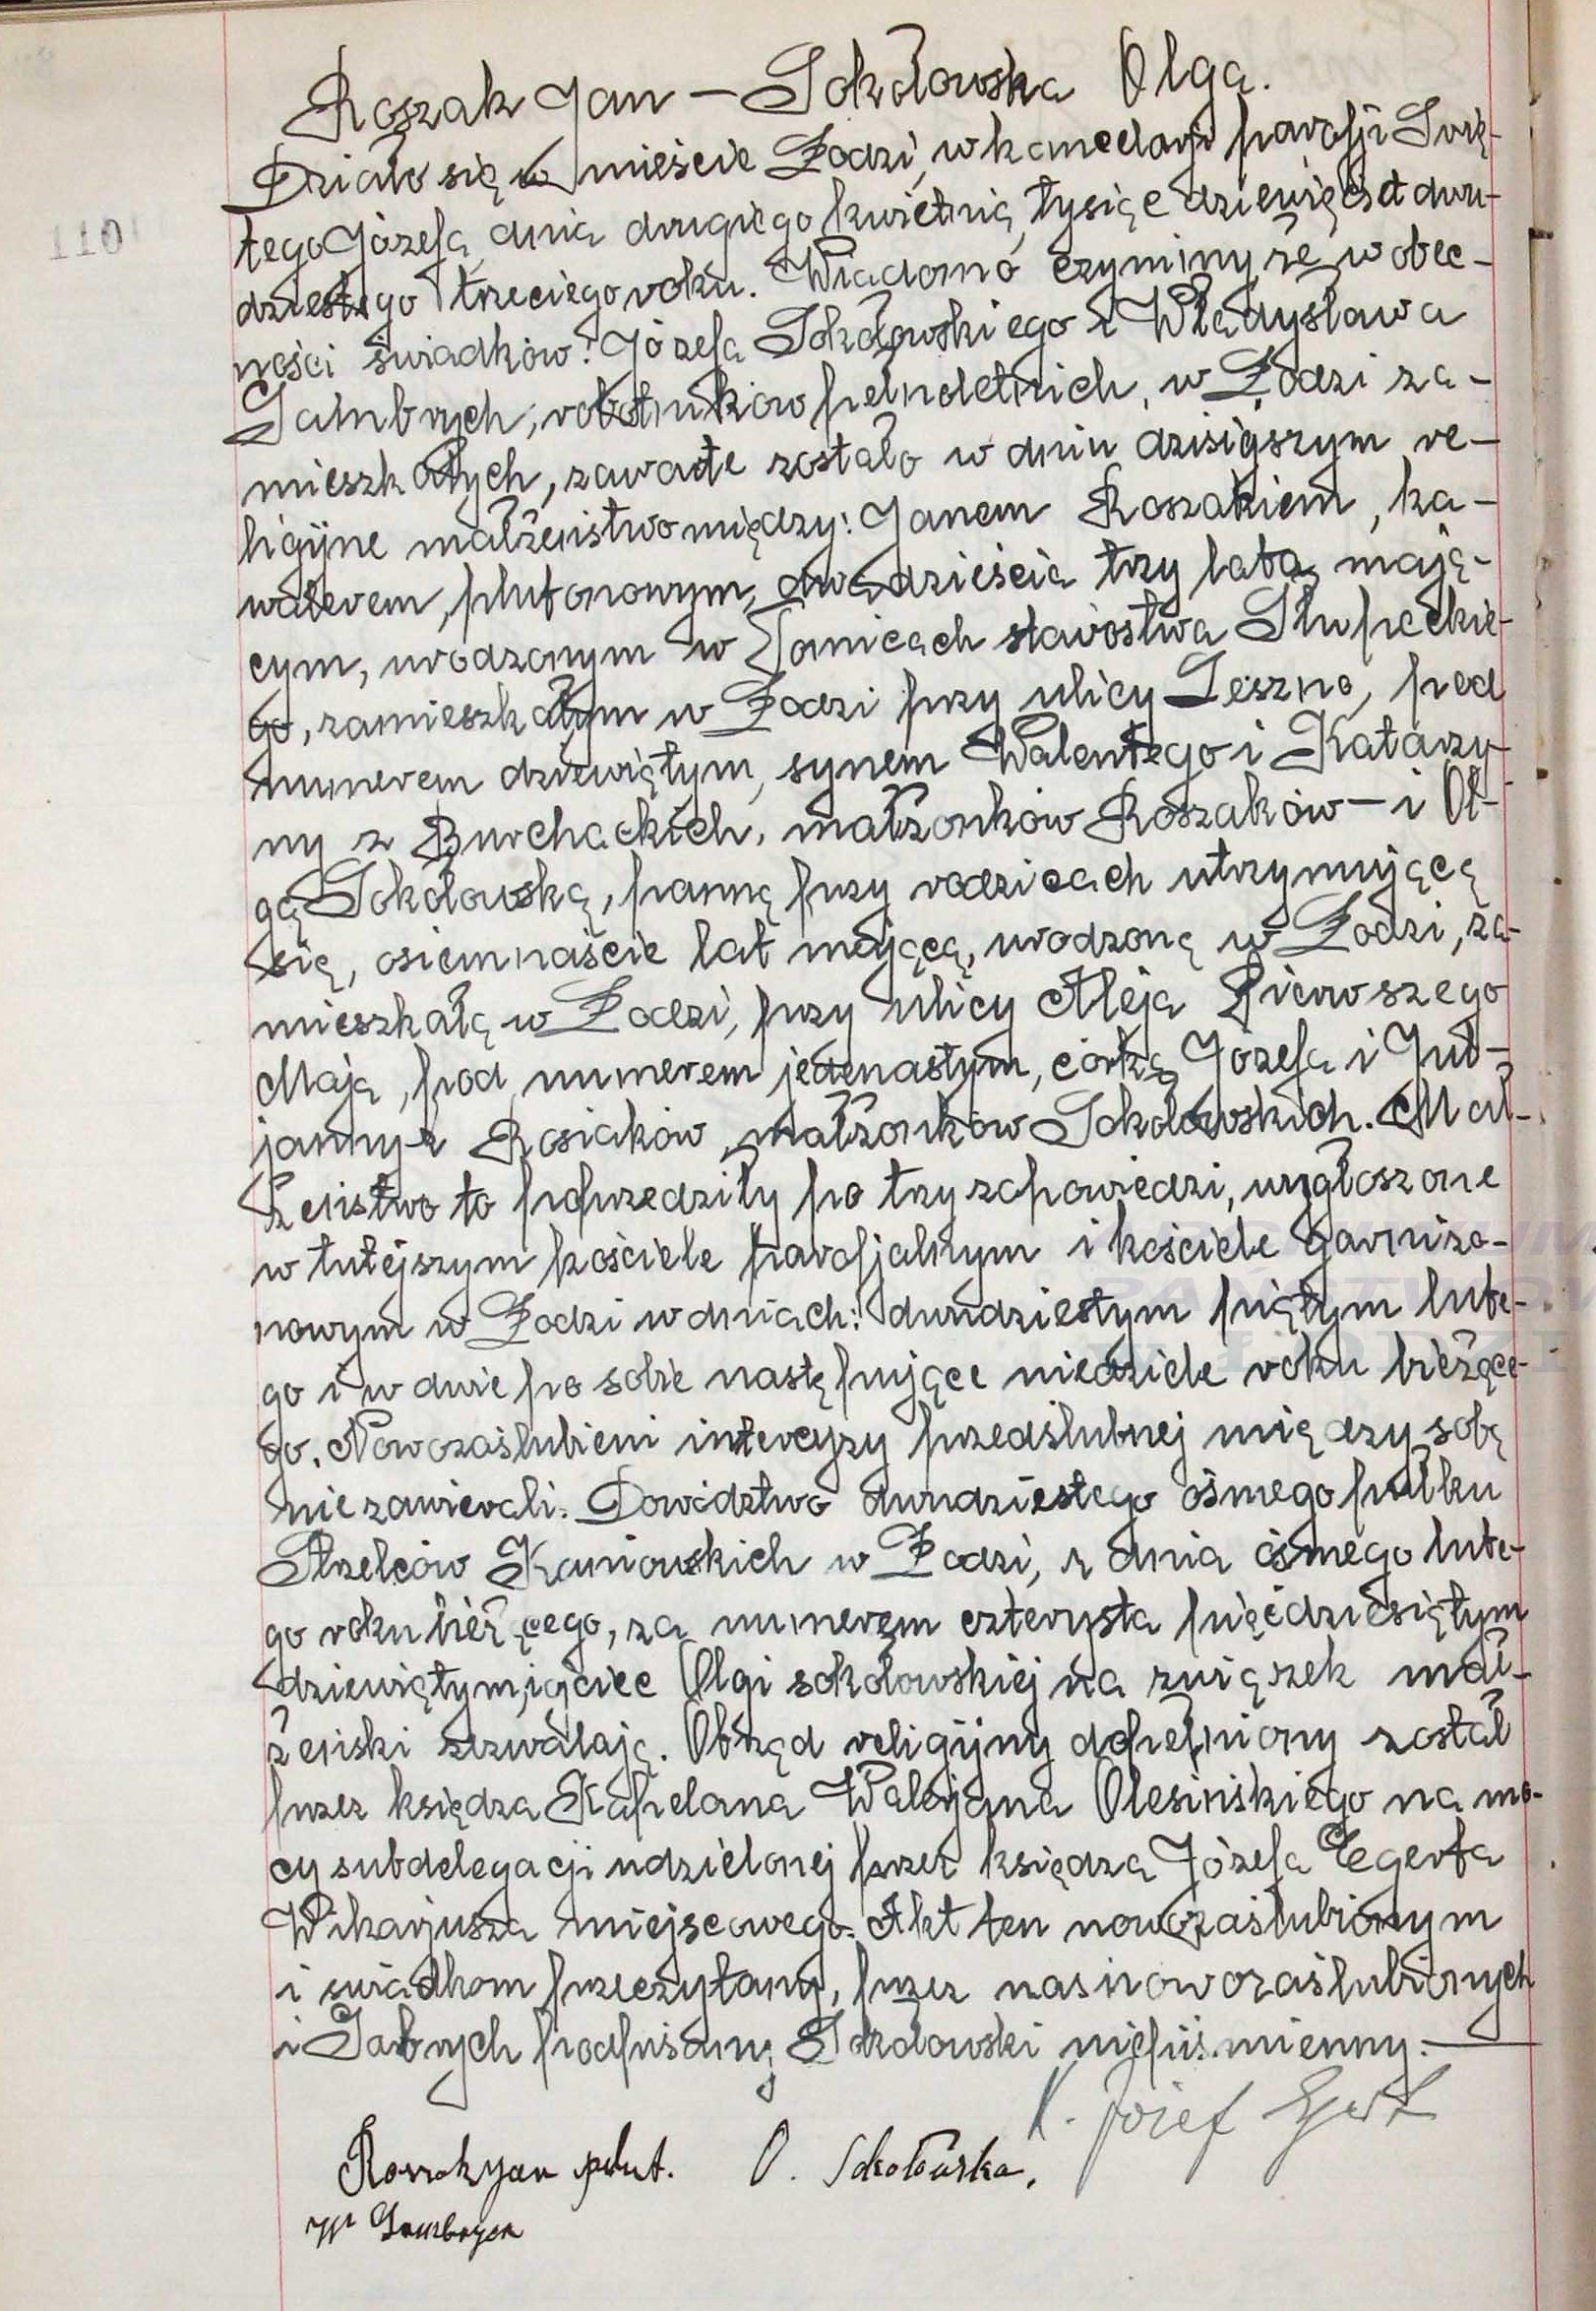 110
Roszak Jan — Sokołowska Olga.
Działo się w mieście Łodzi, w kancelarji parafji Świę-
tego Józefa, dnia drugiego kwietnia, tysiąc dziewięćset dwu-
dziestego trzeciego roku. Wiadomo czynimy, że w obec-
ności świadków: Józefa Sokołowskiego i Władysława
robotników pełnoletnich, w Łodzi za-
mieszkałych, zawarte zostało w dniu dzisiejszym re-
ligijne małżeństwo między: Janem Roszakiem, ka-
walerem, plutonowym, dwadzieścia trzy lata mają-
cym, urodzonym w starostwa Słupeckie-
go, zamieszkałym w Łodzi przy ulicy Leszno, pod
numerem dziewiątym, synem Walentego i Katarzy-
ny z Burchackich, małżonków Roszaków — i Ol-
gą Sokołowską, panną przy rodzicach utrzymującą
się, osiemnaście lat mającą, urodzoną w Łodzi, za-
mieszkałą w Łodzi, przy ulicy Aleja Pierwszego
Maja, pod numerem jedenastym, córką Józefa i Jul-
janny z Rosiaków, małżonków Sokołowskich. Mał-
żeństwo to poprzedziły po trzy zapowiedzi, wygłoszone
w tutejszym kościele parafjalnym i kościele Garnizo-
nowym w Łodzi w dniach: dwudziestym piątym lute-
go i w dwie po sobie następujące niedziele roku bieżące-
go. Nowozaślubieni intercyzy przedślubnej między sobą
nie zawierali. Dowództwo dwudziestego ósmego pułku
Strzelców Kaniowskich w Łodzi, z dnia ósmego lute-
go roku bieżącego, za numerem czterysta pięćdziesiątym
dziewiątym, i ojciec Olgi Sokołowskiej na związek mał-
żeński zezwalają. Obrzęd religijny dopełniony został
przez księdza Kapelana Walerjana Olesińskiego na mo-
cy subdelegacji udzielonej przez księdza Józefa Egerta
Wikarjusza miejscowego. Akt ten nowozaślubionym
i świadkom przeczytany, przez nas nowozaślubionych
i podpisany Sokołowski niepiśmienny. —
X. Józef Egert
Roszak Jan plut. O. Sokołowska.